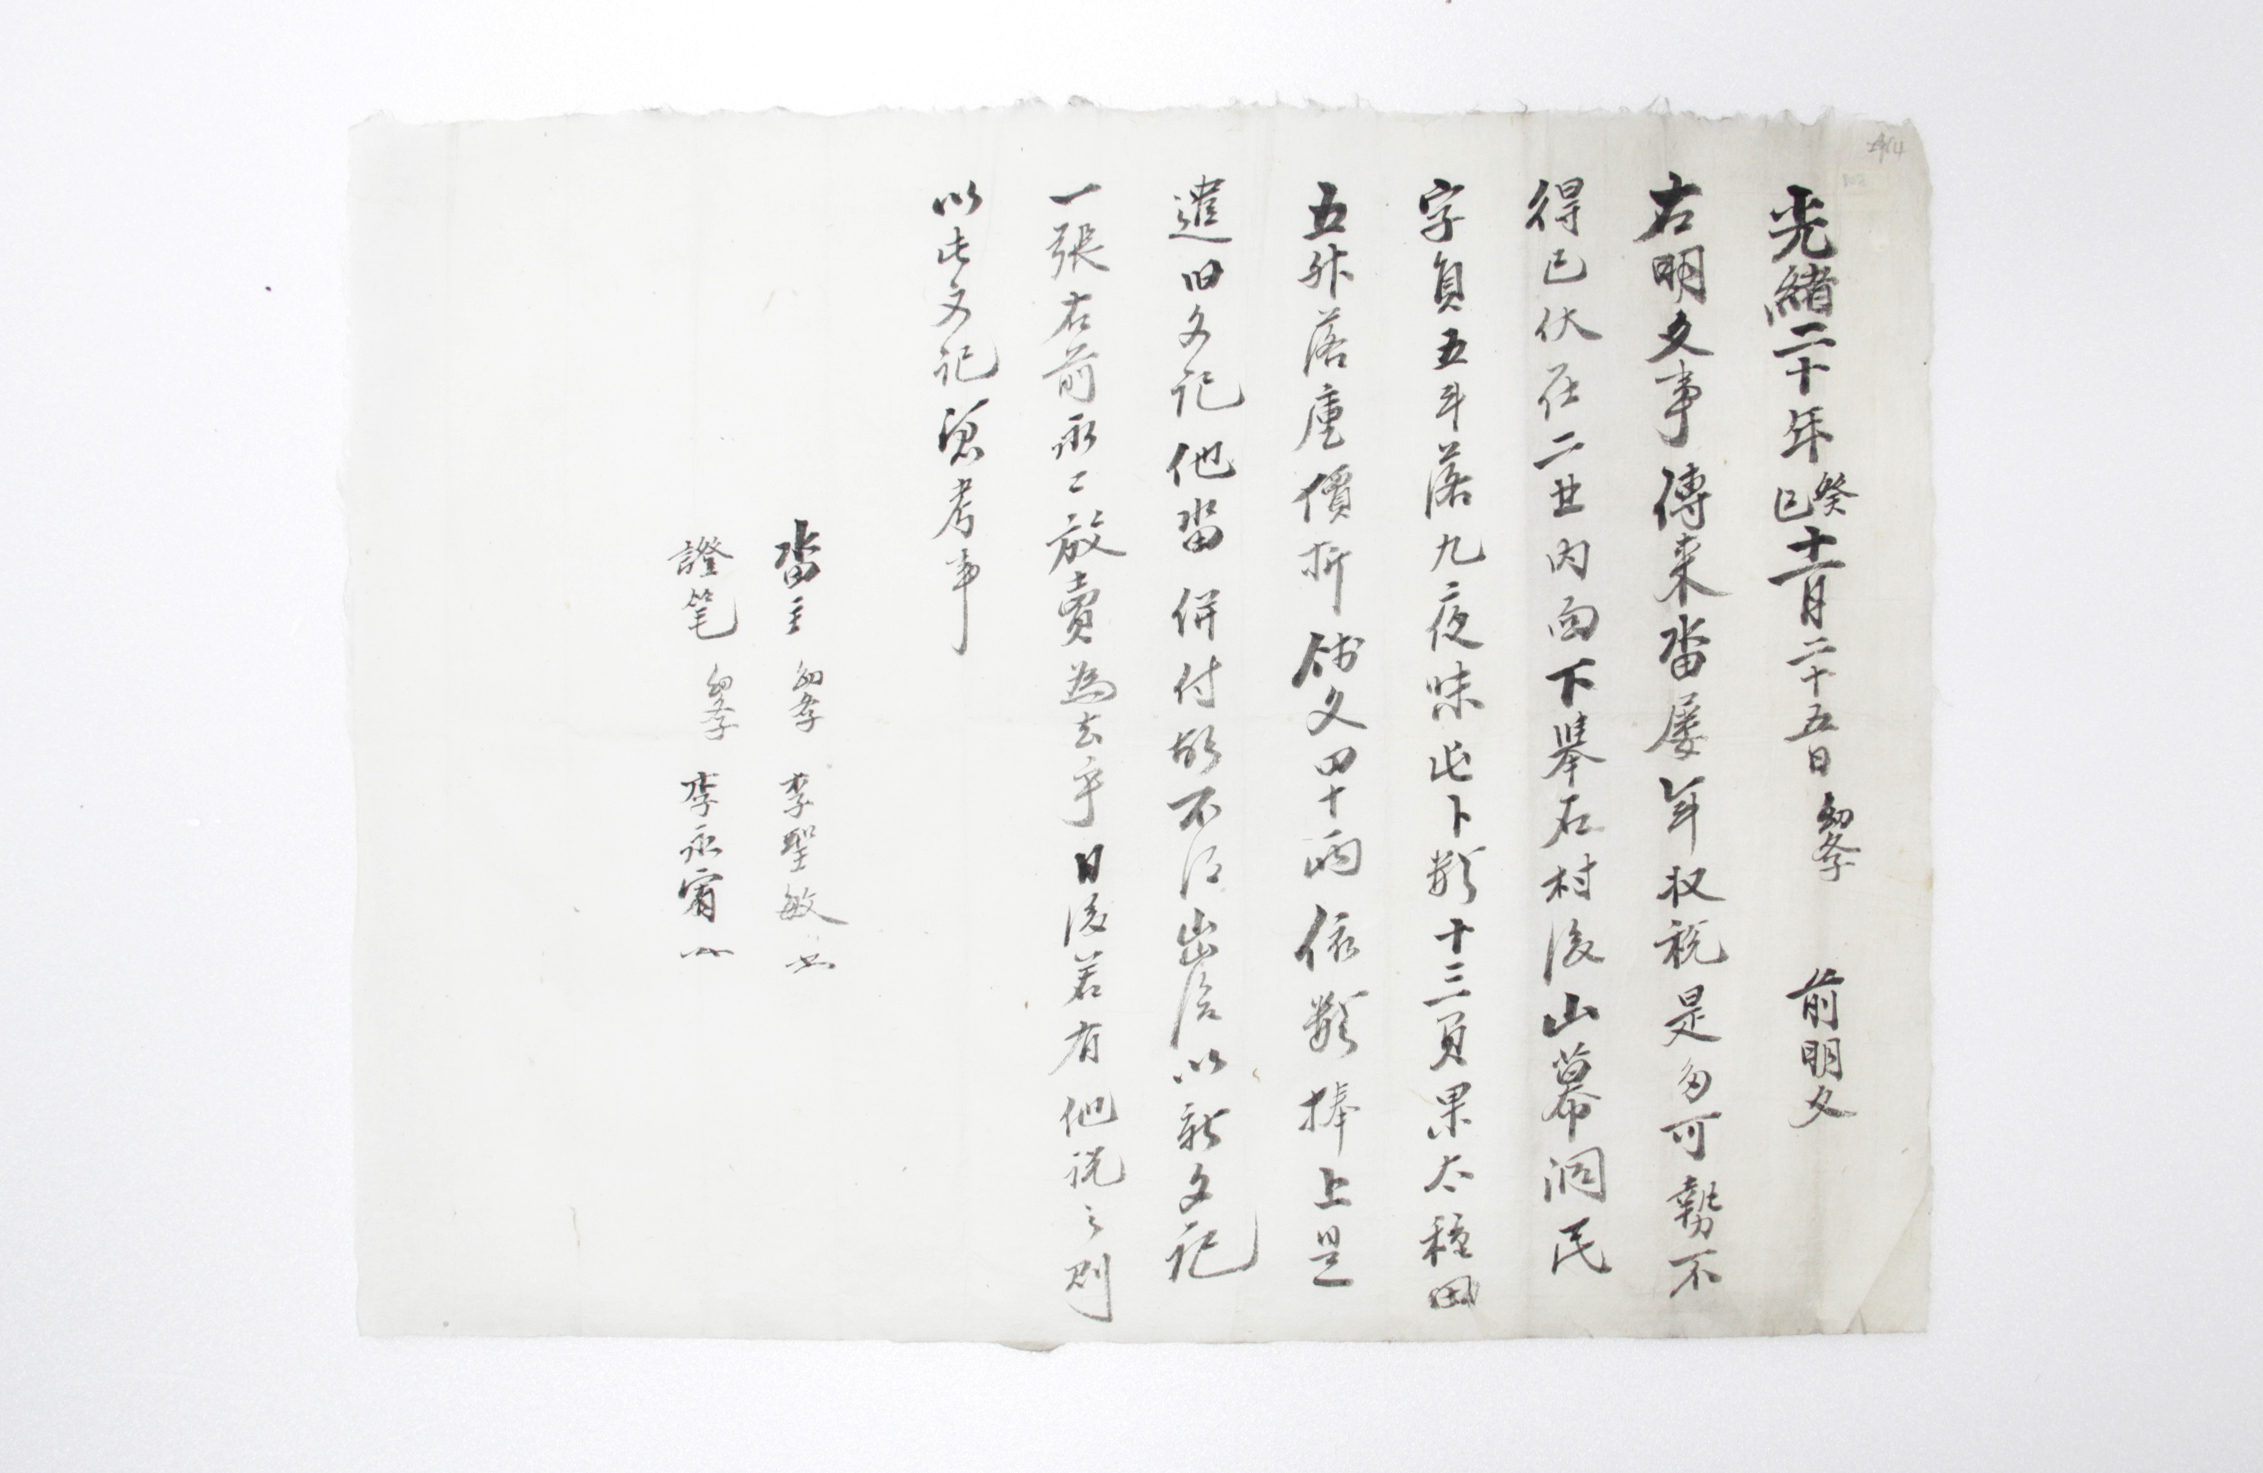 光緖二十年癸巳十二月二十五日 幼學 前明文
右明文事傳来畓屡年収稅是多可勢不
得已伏在二丑內面下擧石村後山幕洞民
字負五斗落九夜味㐣卜數十三負果太種田
五升落庫價折錢文四十兩依數捧上是
遣旧文記他畓倂付故不得出給以新文記
一張右前永〻放賣爲去乎日後若有他說之則
以此文記憑考事
畓主 幼學 李聖敏
證筆 幼學 李永賓